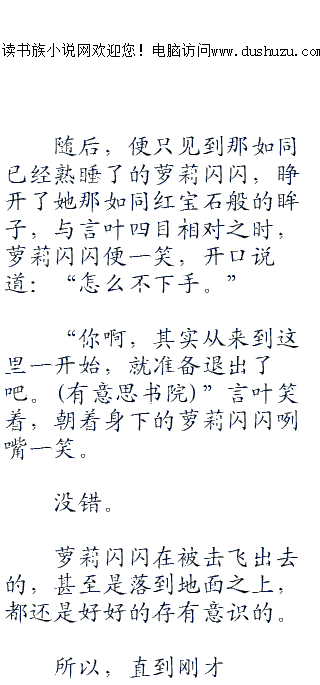 读书族小说网欢迎您！电脑访问www.dushuzu.com
随后，便只见到那如同
已经熟睡了的萝莉闪闪，睁
开了她那如同红宝石般的眸
子，与言叶四目相对之时，
萝莉闪闪便一笑，开口说
道：“怎么不下手。”
“你啊，其实从来到这
里一开始，就准备退出了
吧。(有意思书院)”言叶笑
着，朝着身下的萝莉闪闪咧
嘴一笑。
没错。
萝莉闪闪在被击飞出去
的，甚至是落到地面之上，
都还是好好的存有意识的。
所以，直到刚才